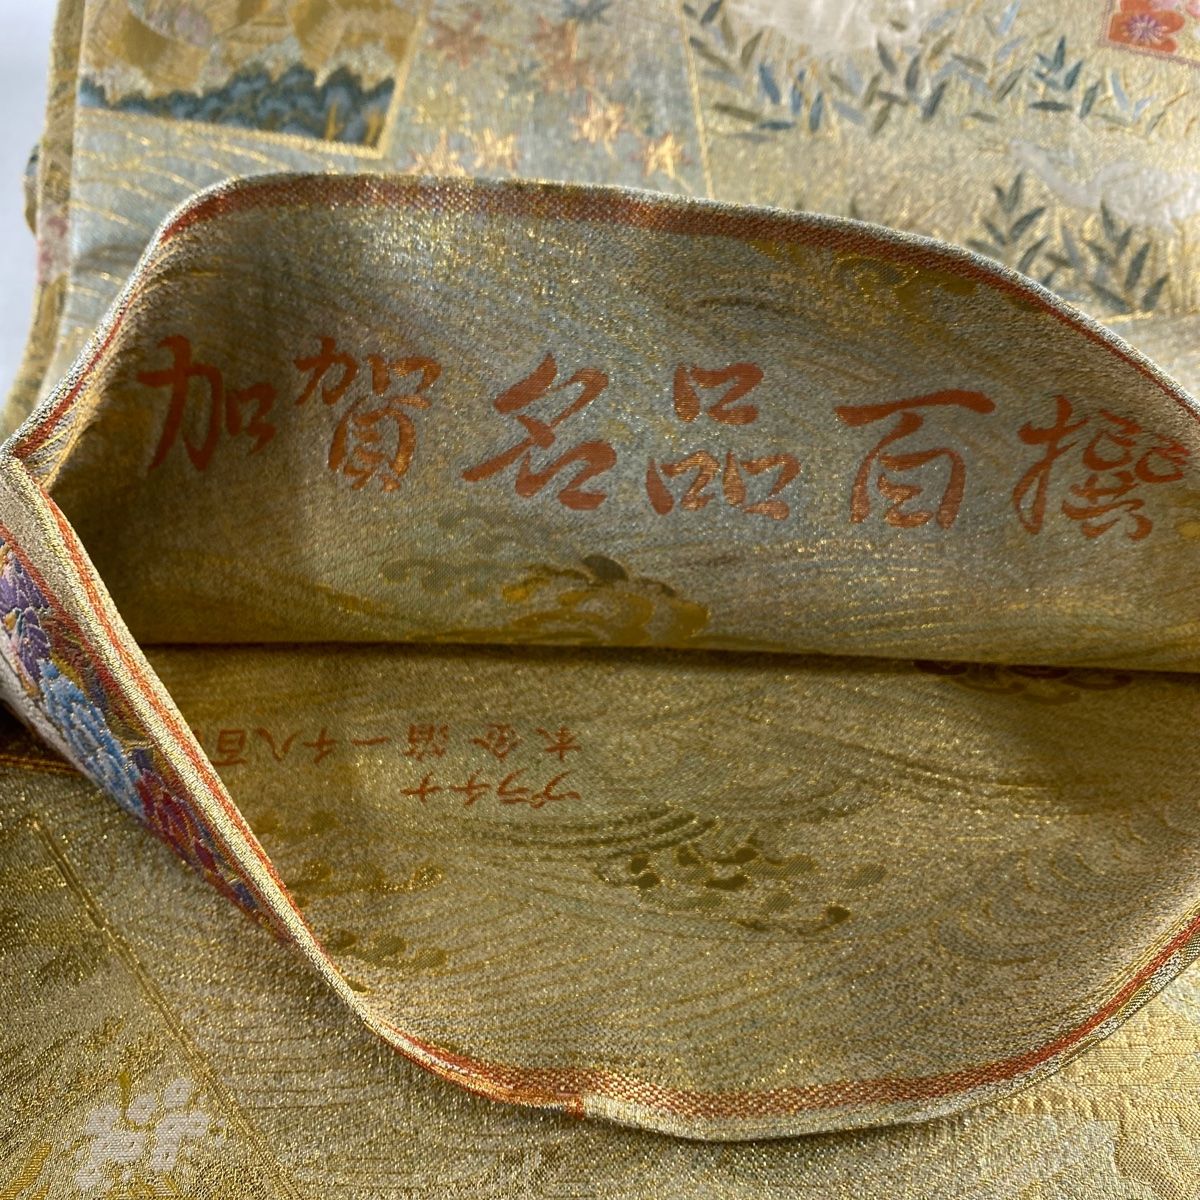 加賀名品百撰
プラチナ
本金箔一千八百